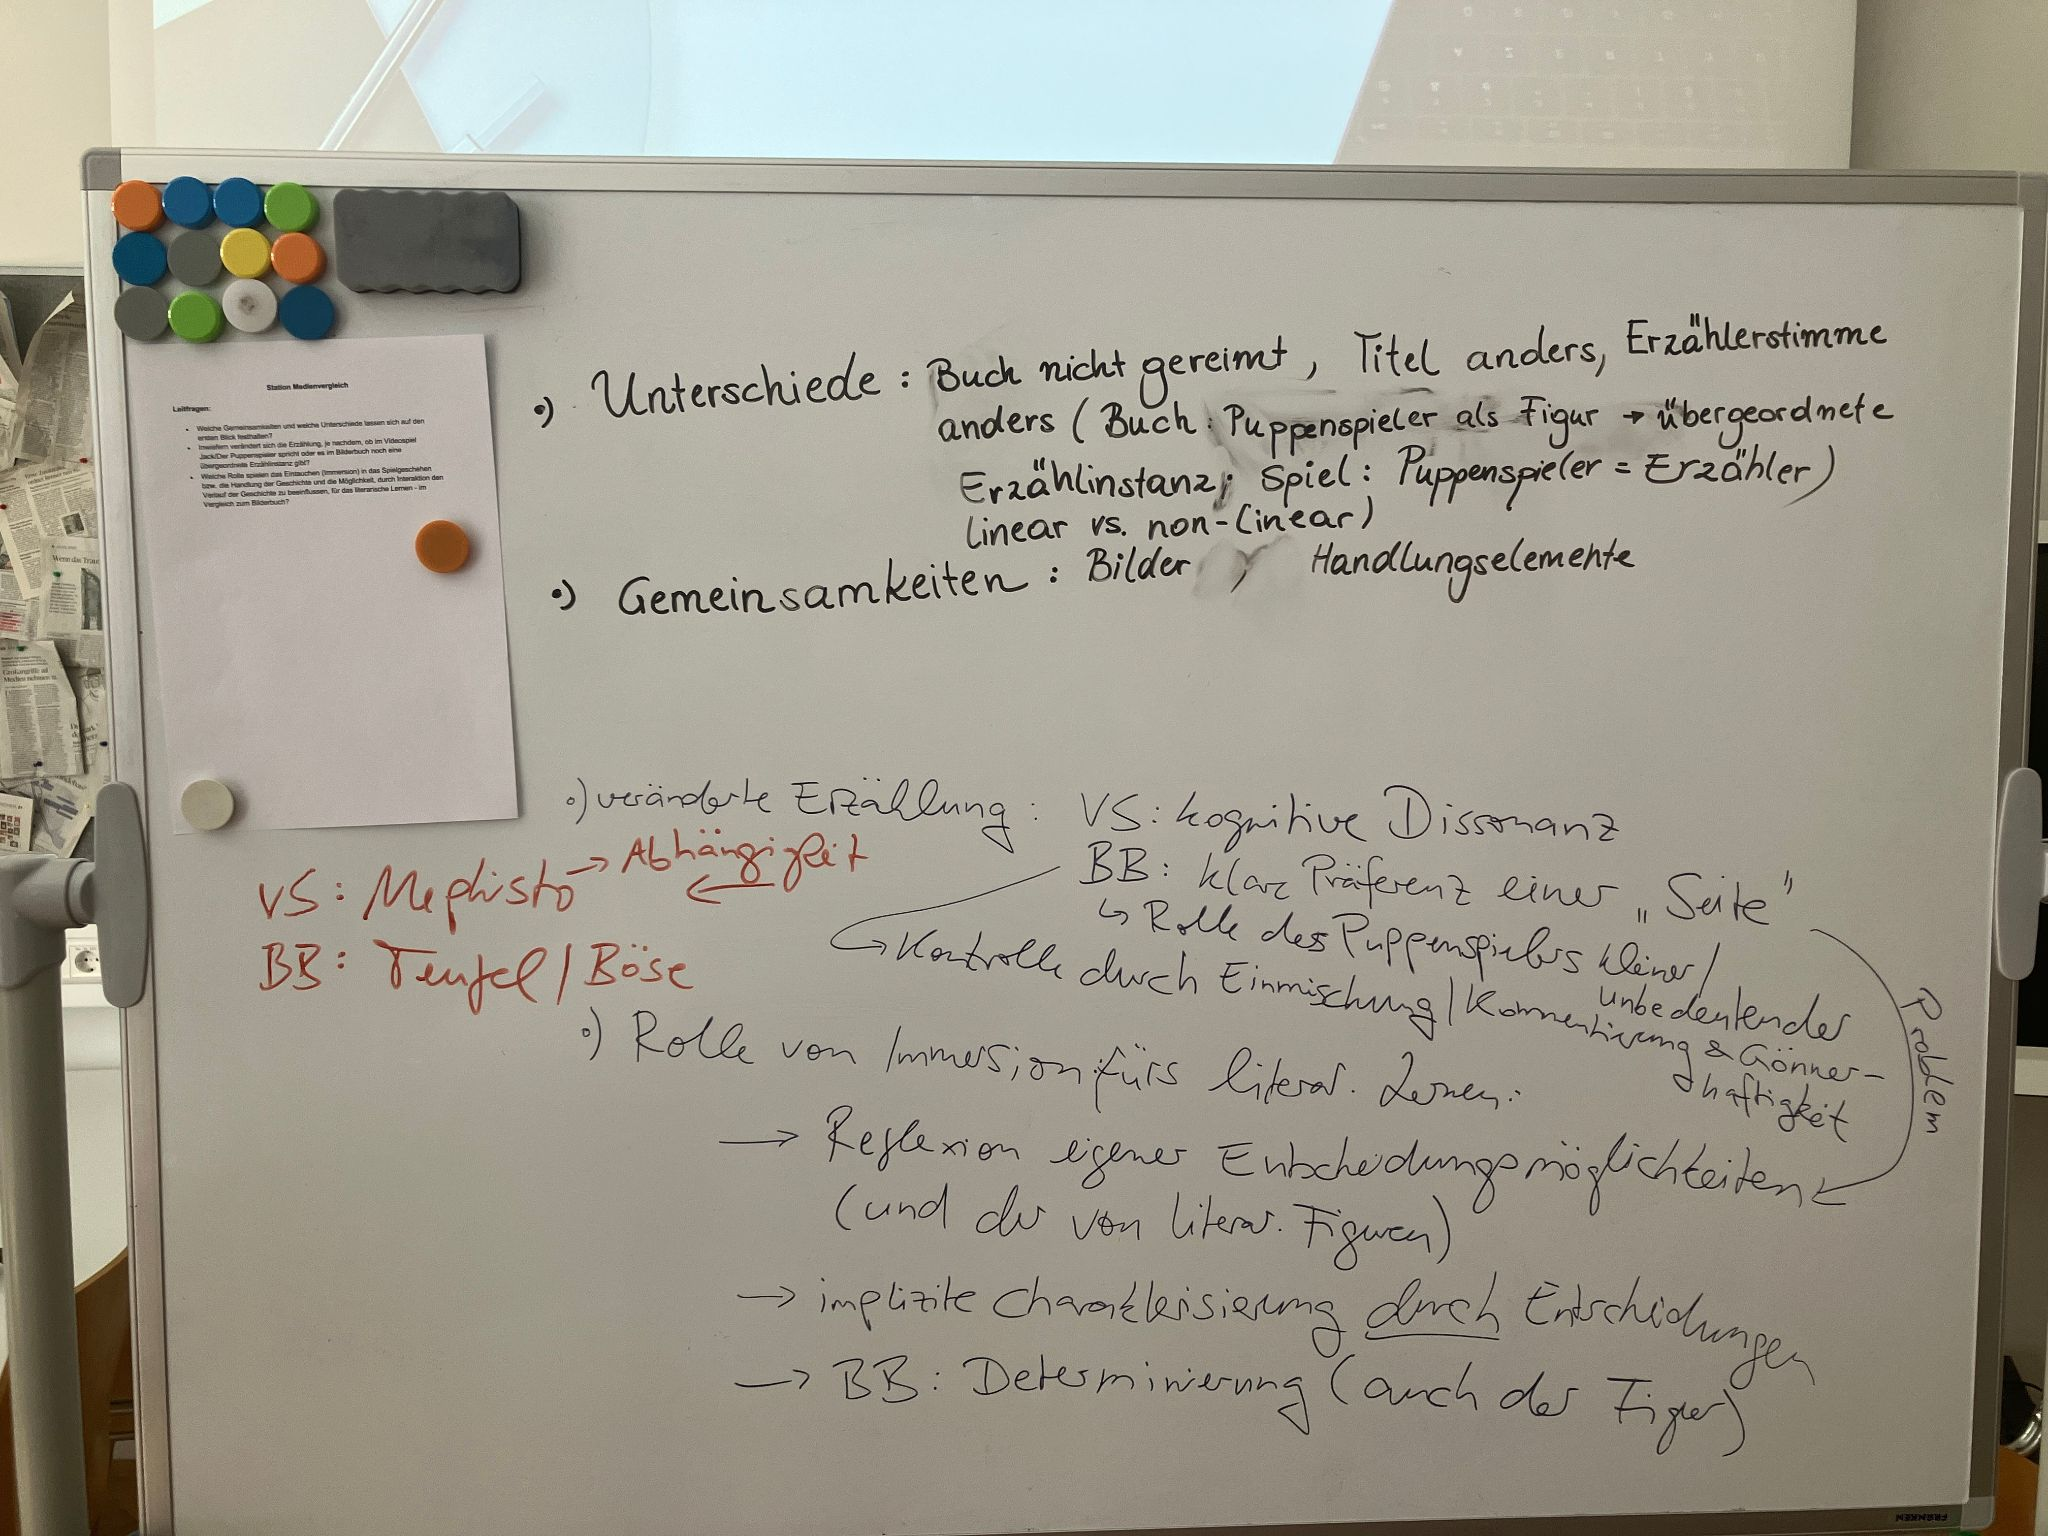 Station Medienvergleich
Leitfragen:
• Welche Gemeinsamkeiten und welche Unterschiede lassen sich auf den
ersten Blick festhalten?
• Inwiefern verändert sich die Erzählung, je nachdem, ob im Videospiel
Jack/Der Puppenspieler spricht oder es im Bilderbuch noch eine
übergeordnete Erzählinstanz gibt?
• Welche Rolle spielen das Eintauchen (Immersion) in das Spielgeschehen
bzw. die Handlung der Geschichte und die Möglichkeit, durch Interaktion den
Verlauf der Geschichte zu beeinflussen, für das literarische Lernen - im
Vergleich zum Bilderbuch?
•) Unterschiede: Buch nicht gereimt, Titel anders, Erzählerstimme
anders (Buch: Puppenspieler als Figur → übergeordnete
Erzählinstanz; Spiel: Puppenspieler = Erzähler)
linear vs. non-linear)
•) Gemeinsamkeiten: Bilder, Handlungselemente
•) veränderte Erzählung: VS: kognitive Dissonanz
BB: klare Präferenz einer „Seite"
↳ Rolle des Puppenspielers kleiner/
unbedeutender
Kontrolle durch Einmischung/Kommentierung & Gönner-
haftigkeit
Problem
VS: Mephisto → Abhängigkeit
←
BB: Teufel/Böse
•) Rolle von Immersion fürs literar. Lernen:
→ Reflexion eigener Entscheidungsmöglichkeiten
(und der von literar. Figuren)
→ implizite Charakterisierung durch Entscheidungen
→ BB: Determinierung (auch der Figur)
Wenn das Trau
Großangriffe auf
Medien nehmen zu
FRANKEN